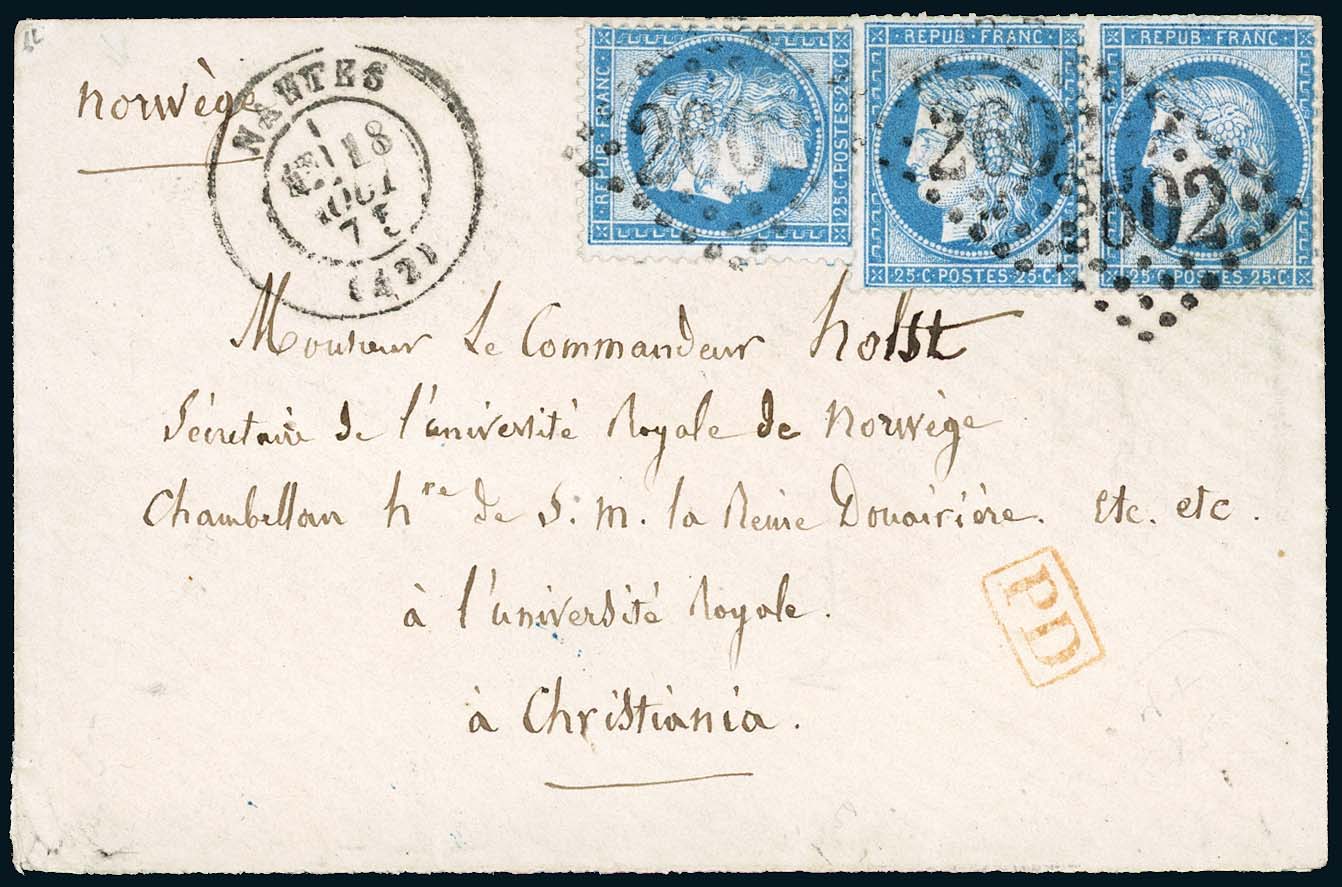 norwège
NANTES
18
AOUT
75
(42)
REPUB. FRANC.
25·C·POSTES·25·C
REPUB·FRANC·
25·C·POSTES·25·C
260
REPUB·FRANC·
25·C·POSTES·25·C
2602
Monsieur Le Commandeur holst
Sécretaire de l'université Royale de Norwège
Chambellan hre de S. m. la Reine Douairière. Etc. etc.
à l'université Royale.
PD
à Christiania.